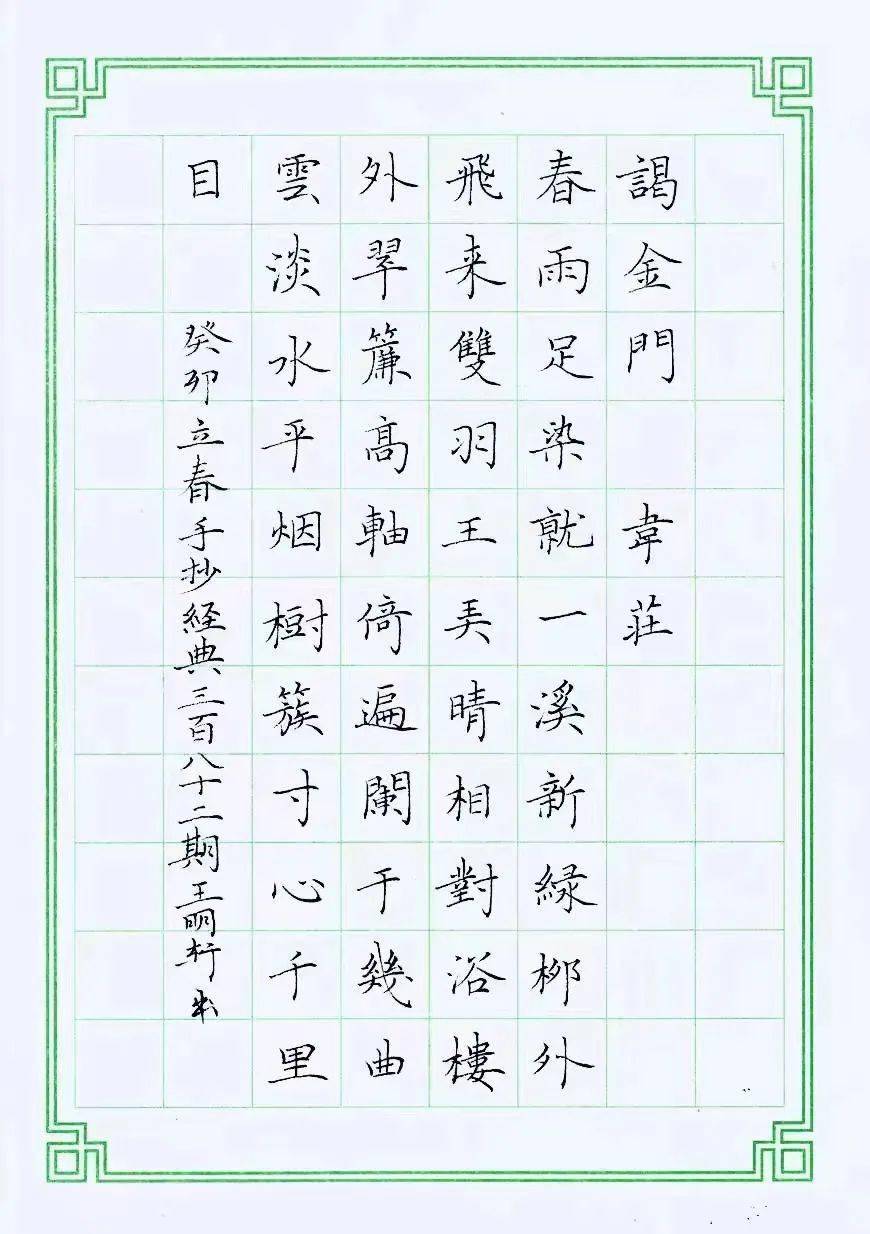 謁金門 韋莊
春雨足染就一溪新緑柳外
飛来雙羽王美晴相對浴樓
外翠簾高軸倚遍闌干幾曲
雲淡水平烟樹簇寸心千里
目
癸卯立春手抄経典三百八十二期王明